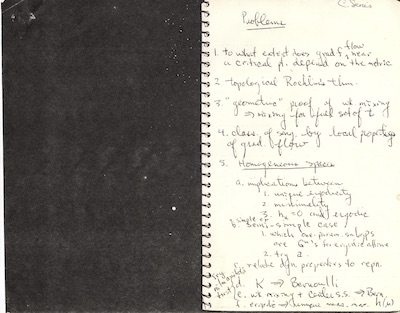 Problems
1. to what extent does grad f flow near
a critical pt. depend on the metric
2 topological Rochlin's thm.
3. "geometric" proof of wk mixing
⇒ mixing for a full set of t
4. class. of sing. by local properties
of grad. flow
5. Homogeneous spaces
a. implications between
1. unique ergodicity
2. minimality
3. = 0 and ergodic
b. semi-simple case
1. which one-param. subgps
are for ergodic affine
2. try
c. relate dyn properties to repn.
d. K → Bernoulli
e. wk mixing + → Bern.
f. ergodic → unique meas. max. h(μ)